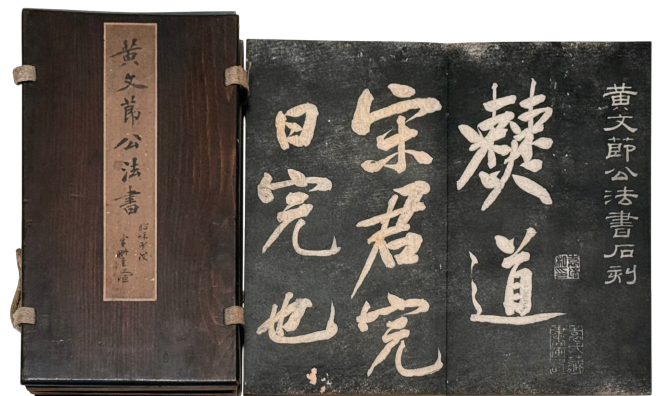 黄文節公法書
黄文節公法書石刻
僰道
宋君完
日完也